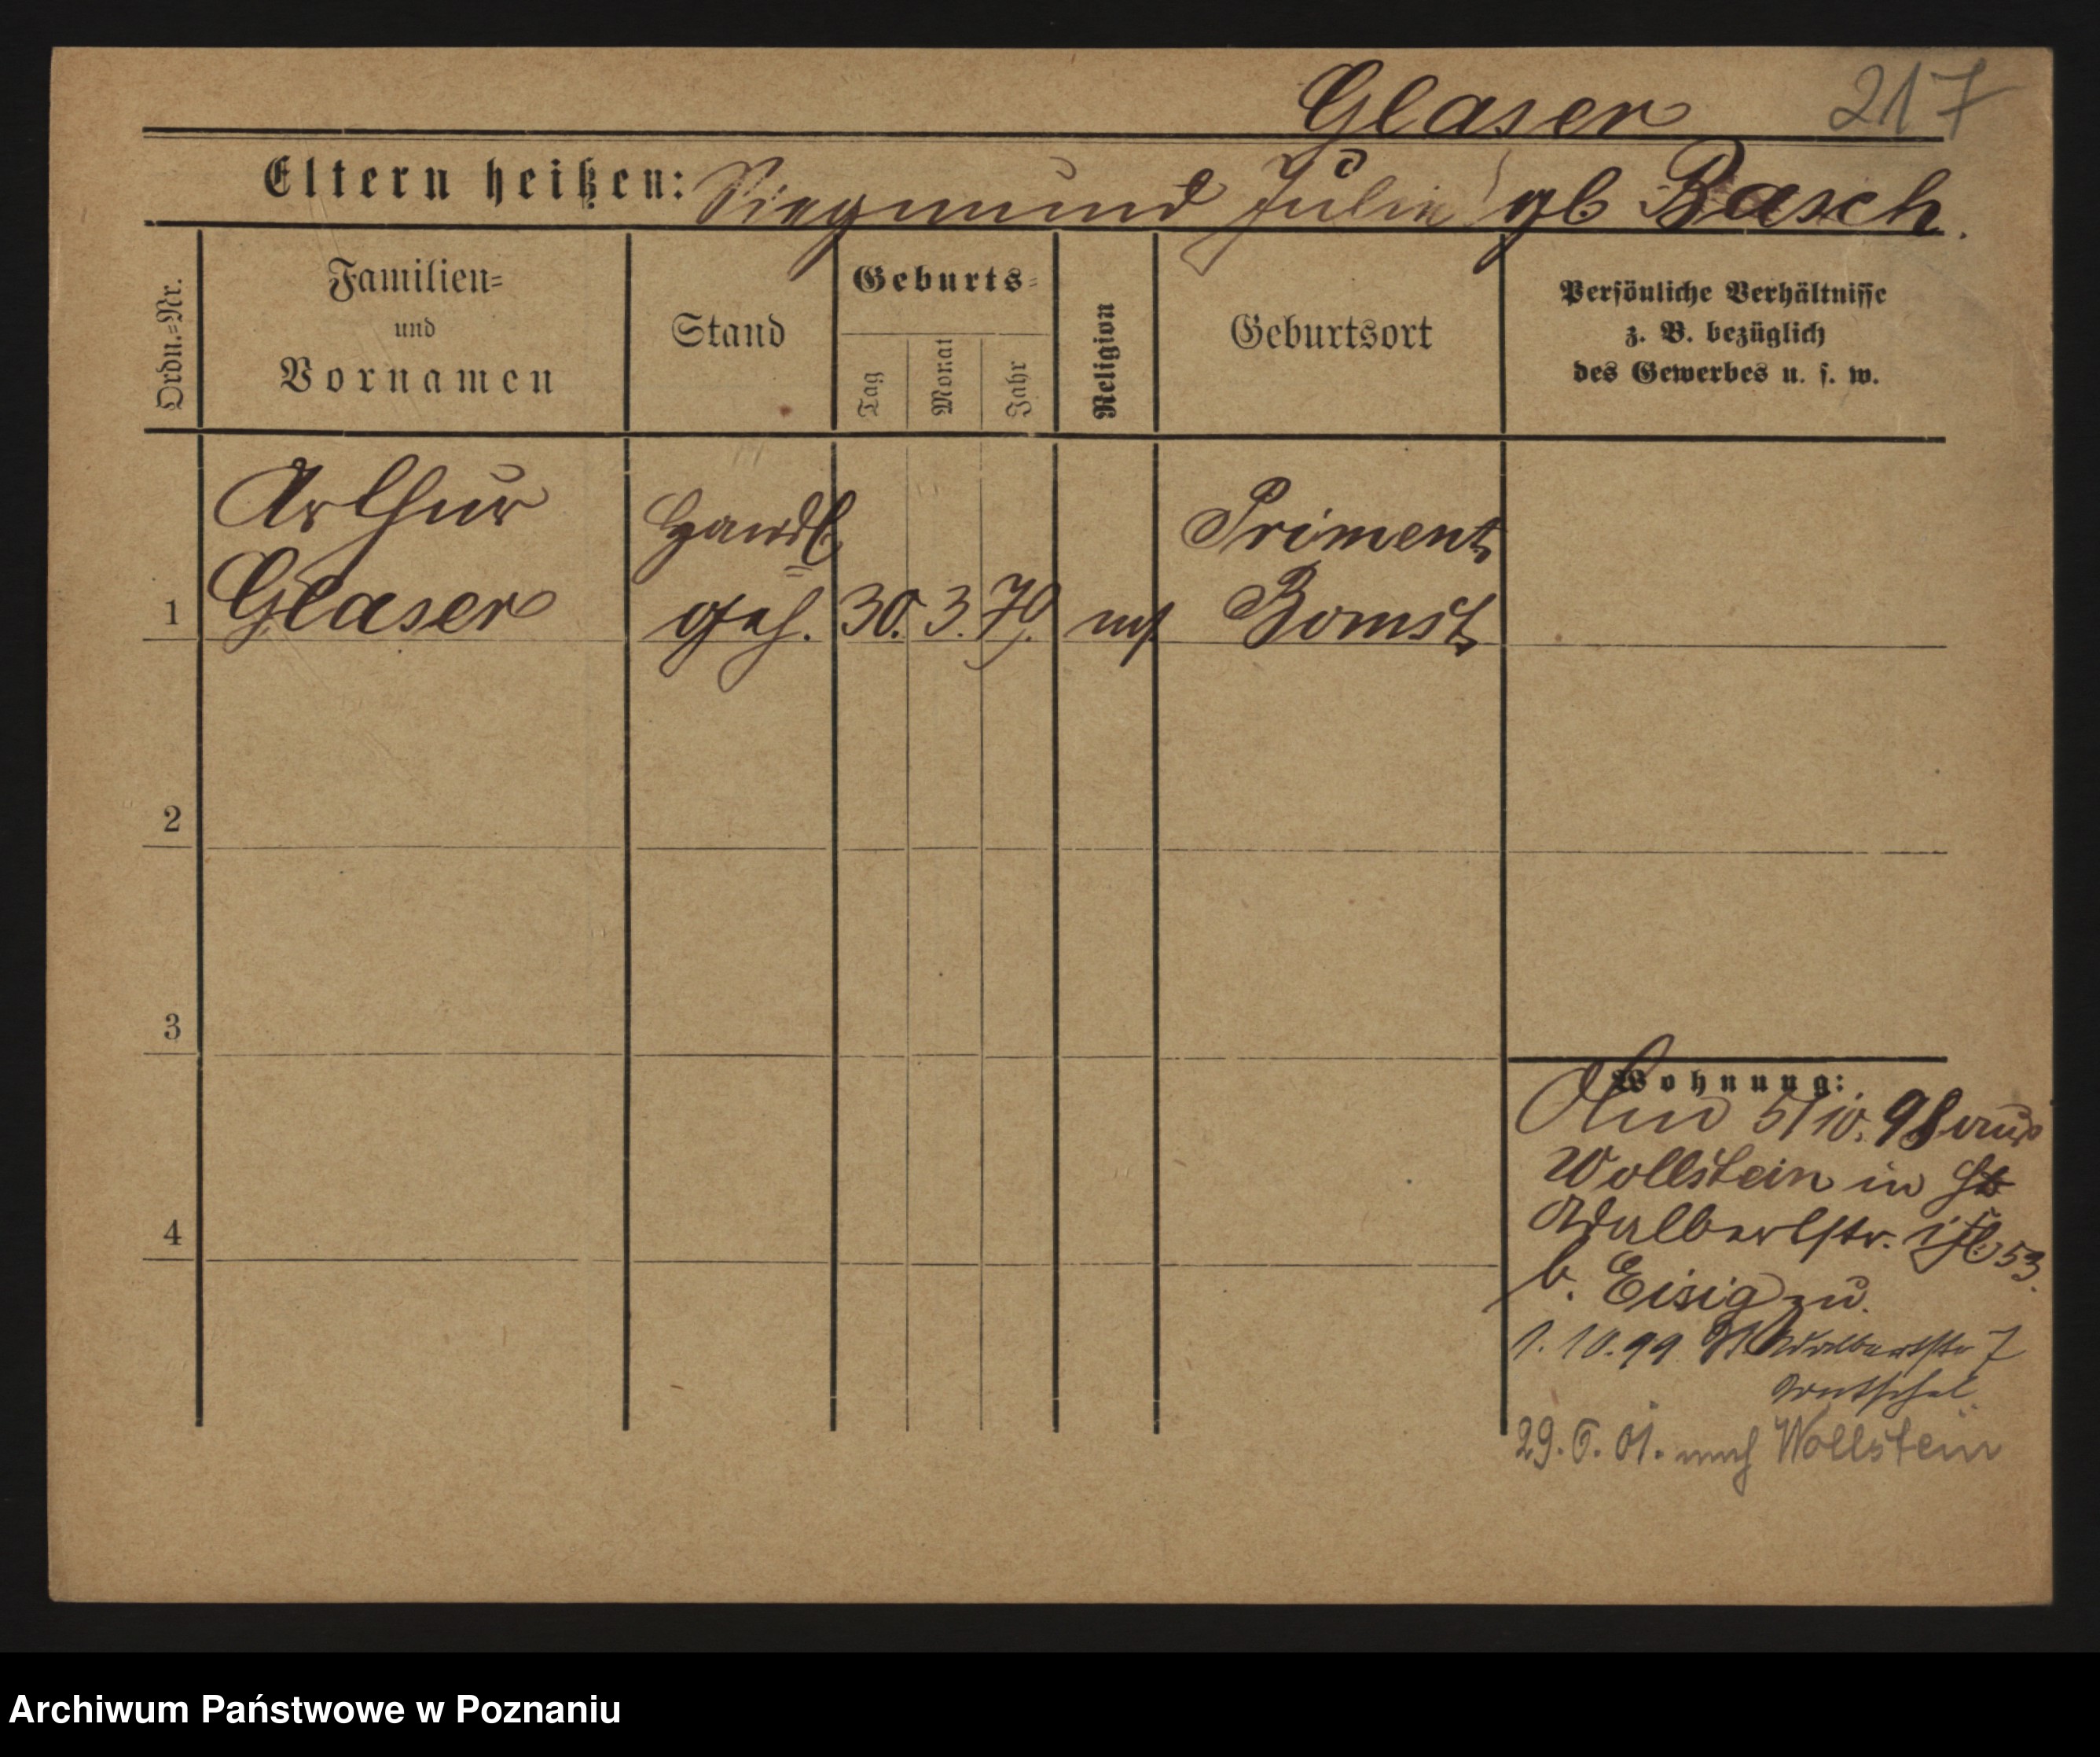 Glaser 217
Eltern heißen: Siegmund Julie gb Basch.
Ordn.=Nr.
Familien=
und
Vornamen
Stand
Geburts=
Tag
Monat
Jahr
Religion
Geburtsort
Persönliche Verhältnisse
z. B. bezüglich
des Gewerbes u. s. w.
Arthur
Glaser
Handl
geh.
30. 3. 79.
mos
Priment
Bomst
1
2
3
4
Wohnung:
5/10. 98 aus
Wollstein in
Adalbertstr. 53.
b. Eisig zu.
1. 10. 99 Adalbertstr 7
29. 6. 01. nach Wollstein
Archiwum Państwowe w Poznaniu